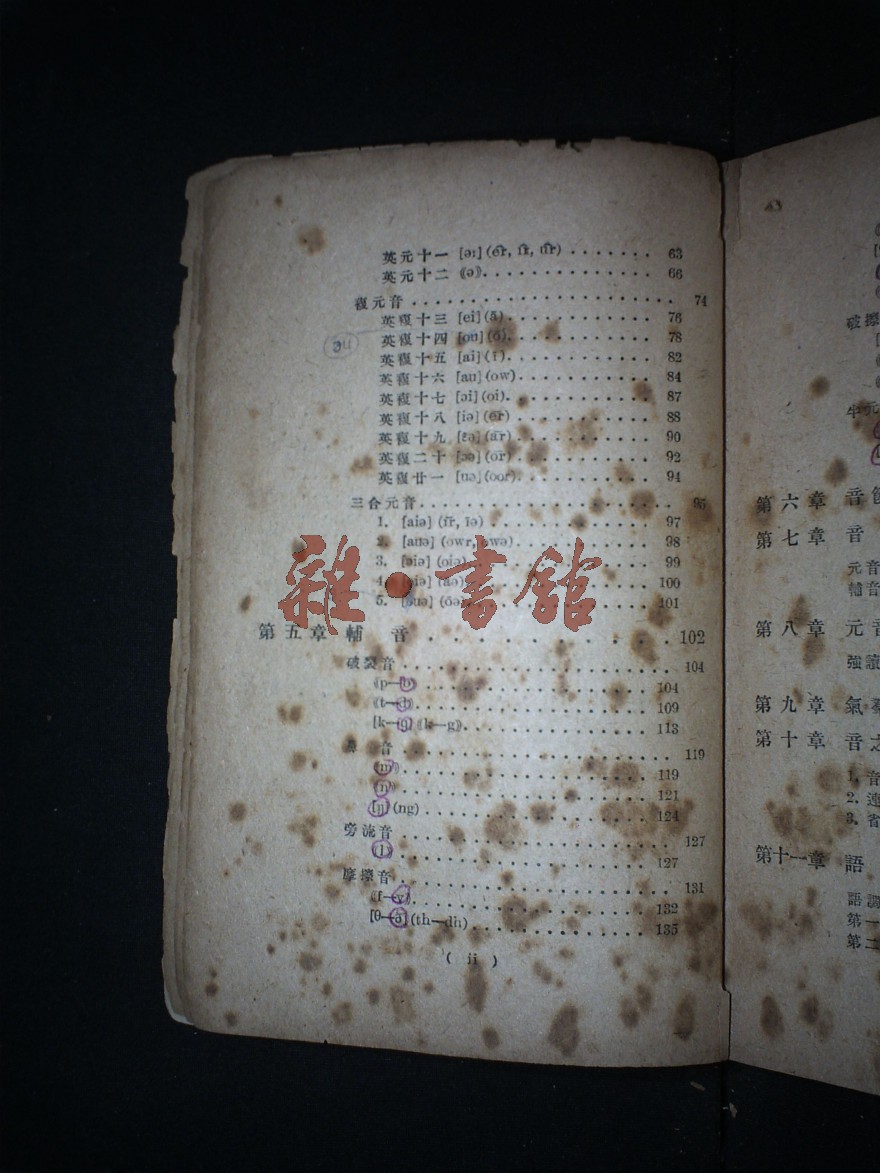 英元十一 [əɪ] (ẽr, ĩr, ũr) 63
英元十二 ⟪ə⟫ 66
複元音 74
英複十三 [ei] (ā) 76
英複十四 [ou] (ō) 78
英複十五 [ai] (ī) 82
英複十六 [au] (ow) 84
英複十七 [ɔi] (oi) 87
英複十八 [iə] (ēr) 88
英複十九 [ɛə] (ār) 90
英複二十 [ɔə] (ōr) 92
英複廿一 [uə] (oor) 94
三合元音 95
1. [aiə] (īr, īə) 97
2. [auə] (owr, owə) 98
3. [ɔiə] (oiə) 99
4. 100
5. 101
第五章 輔音 102
破裂音 104
⟪p—b⟫ 104
⟪t—d⟫ 109
[k—g] ⟪k—g⟫ 113
鼻音 119
⟪m⟫ 119
⟪n⟫ 121
[ŋ] (ng) 124
旁流音 127
⟪l⟫ 127
摩擦音 131
⟪f—v⟫ 132
[θ—ð] (th—dh) 135
( ii )
雜·書館
破擦
半元
第六章 音
第七章 音
元音
輔音
第八章 元音
強讀
第九章 氣
第十章 音之
1. 音
2. 連
3. 省
第十一章 語
語調
第一
第二